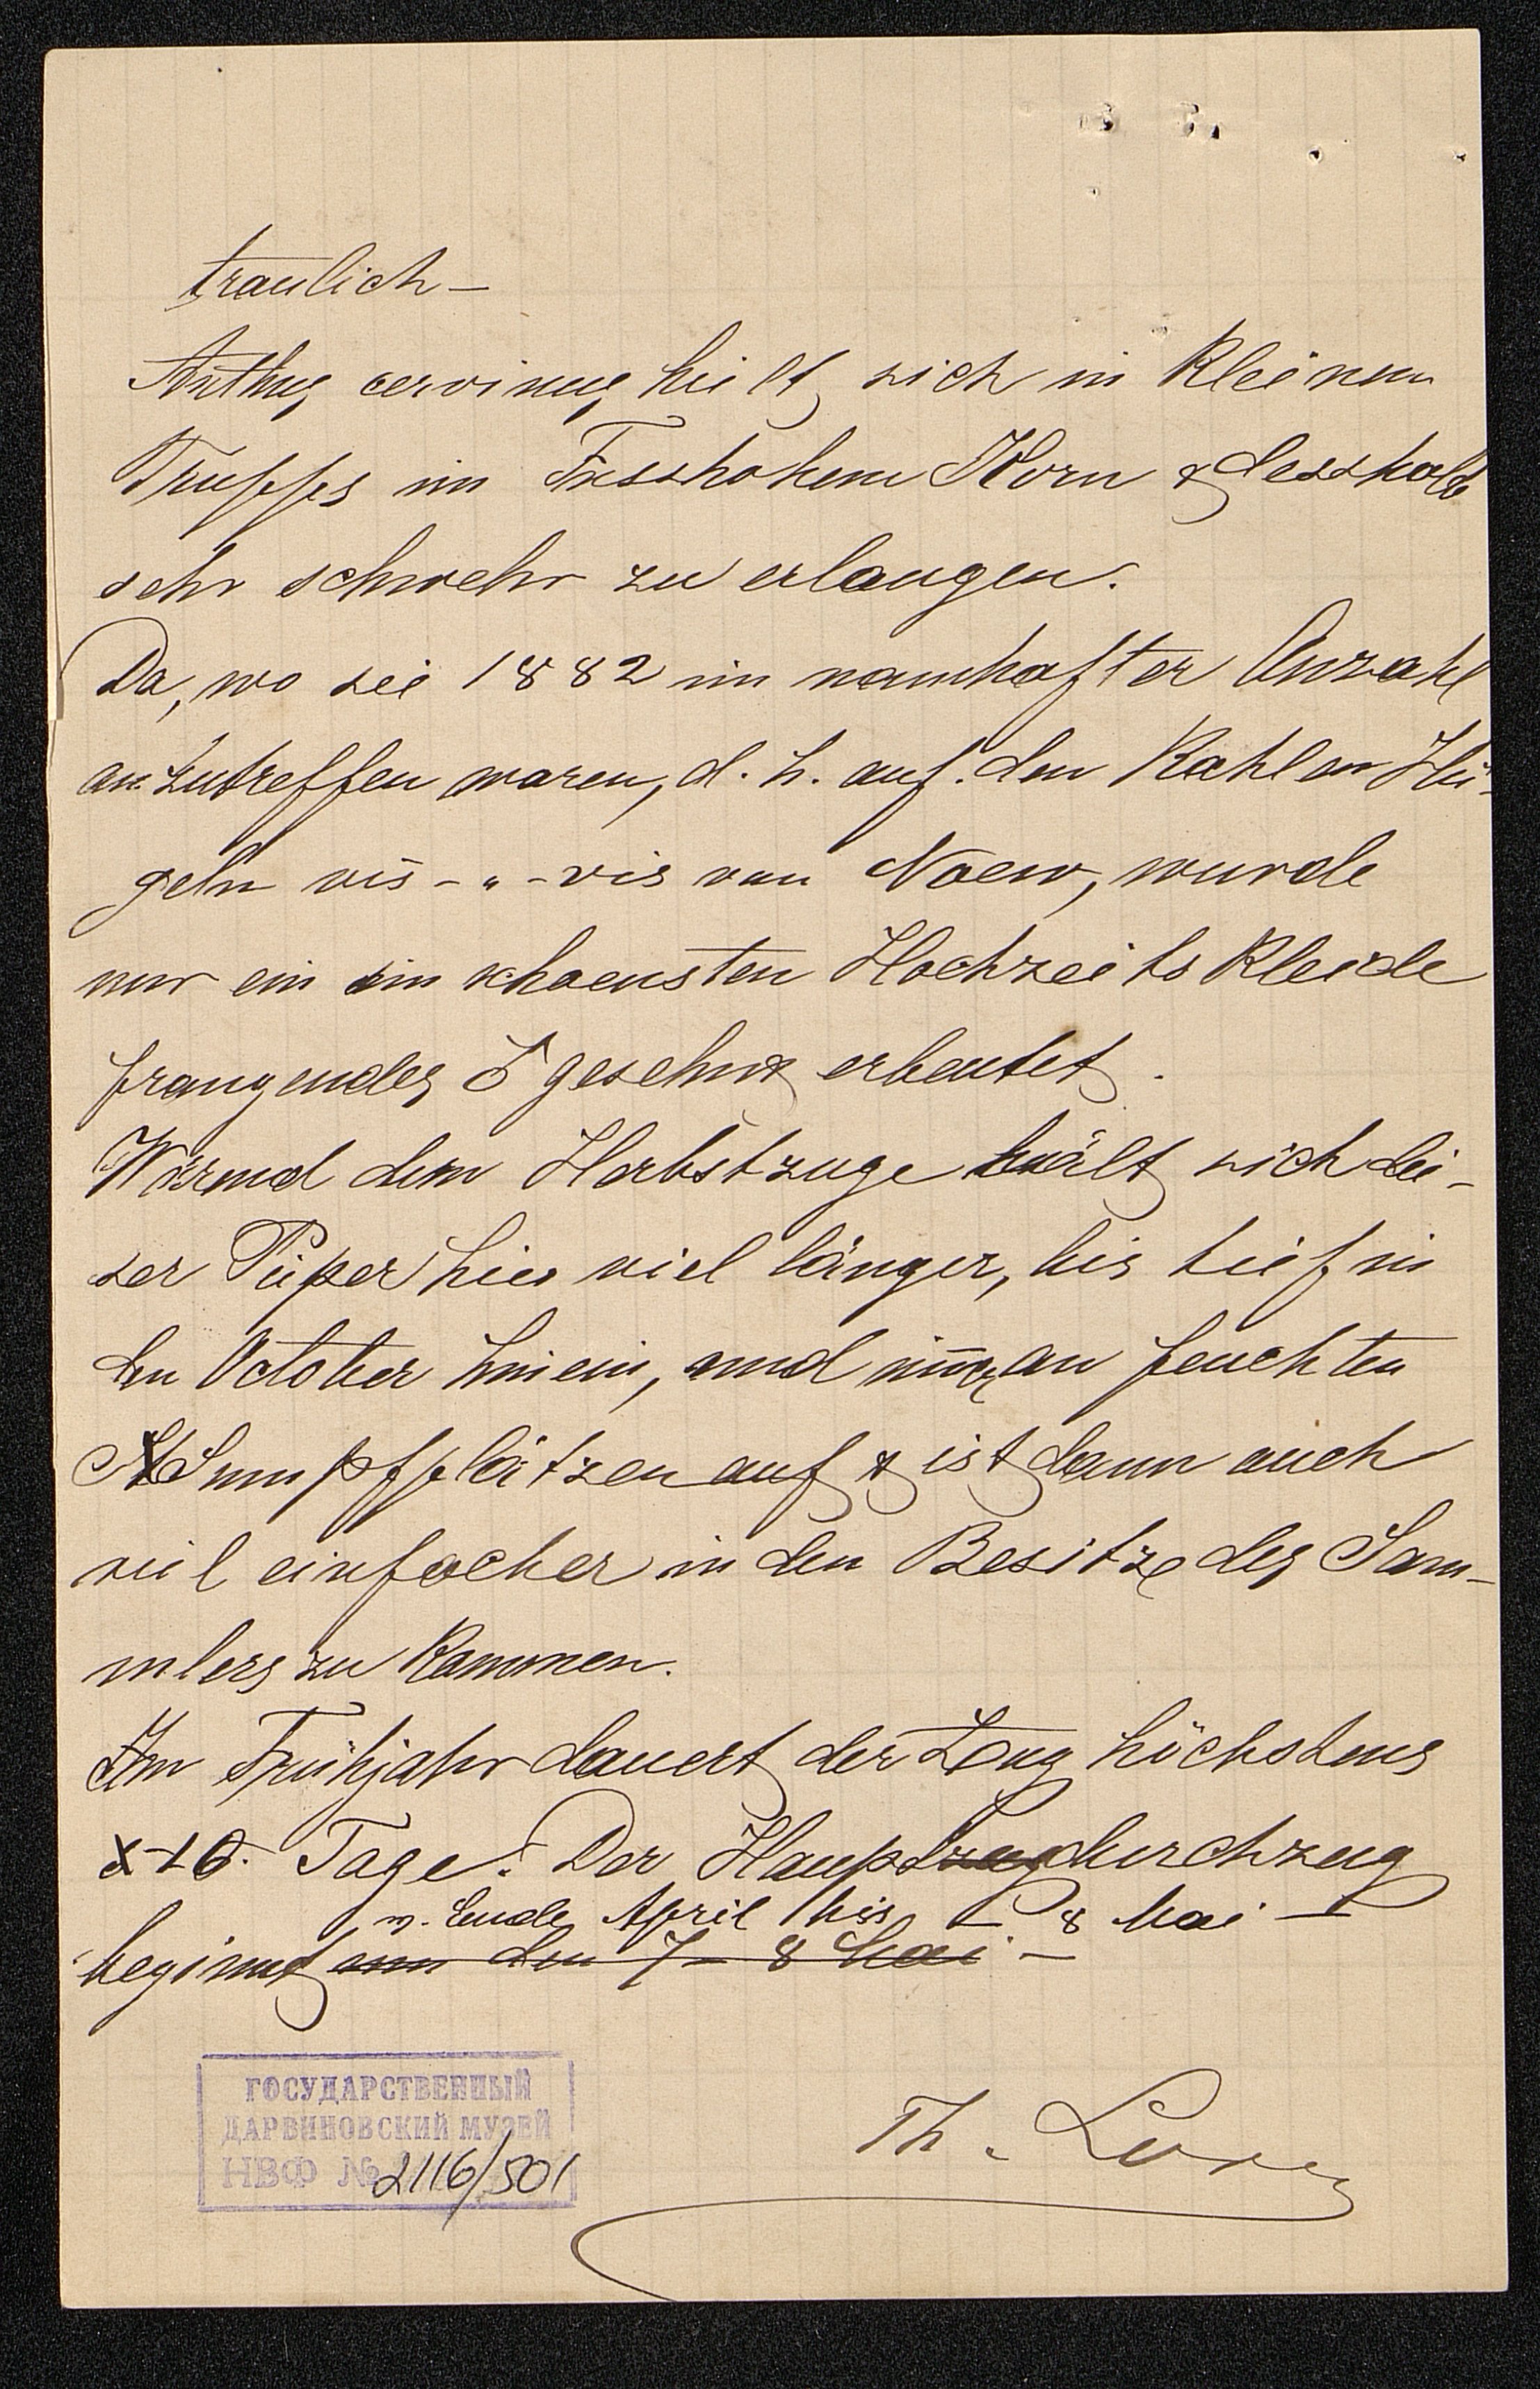 traulich –
Anthus cervinus hielt sich in Kleinen
Trupps im Fusshohem Korn & desshalb
sehr schwehr zu erlangen.
Da, wo sie 1882 in namhafter Anzahl
anzutreffen waren, d. h. auf den Kahlen Hü-
geln vis-a-vis von , wurde
nur ein im schoensten Hochzeits Kleide
prangendes ♂ gesehn & erbeutet.
Wärend dem Herbstzuge hält sich die-
ser Pieper hier viel länger, bis tief in
den October hinein, und nur an feuchten
Sumpfplätzen auf & ist dann auch
viel einfacher in den Besitze des Sam-
mlers zu Kommen.
Im Frühjahr dauert der Zug höchstens
10. Tage. Der Hauptzugdurchzug
v. Ende April bis – 8 Mai –
beginnt um den 7 – 8 Mai –
Th. Lorenz
ГОСУДАРСТВЕННЫЙ
ДАРВИНОВСКИЙ МУЗЕЙ
НВФ № 2116/501